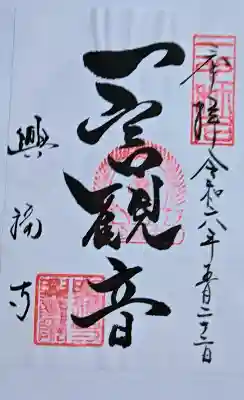 奉拝 令和 年五月二十 日
一言観音
興福寺